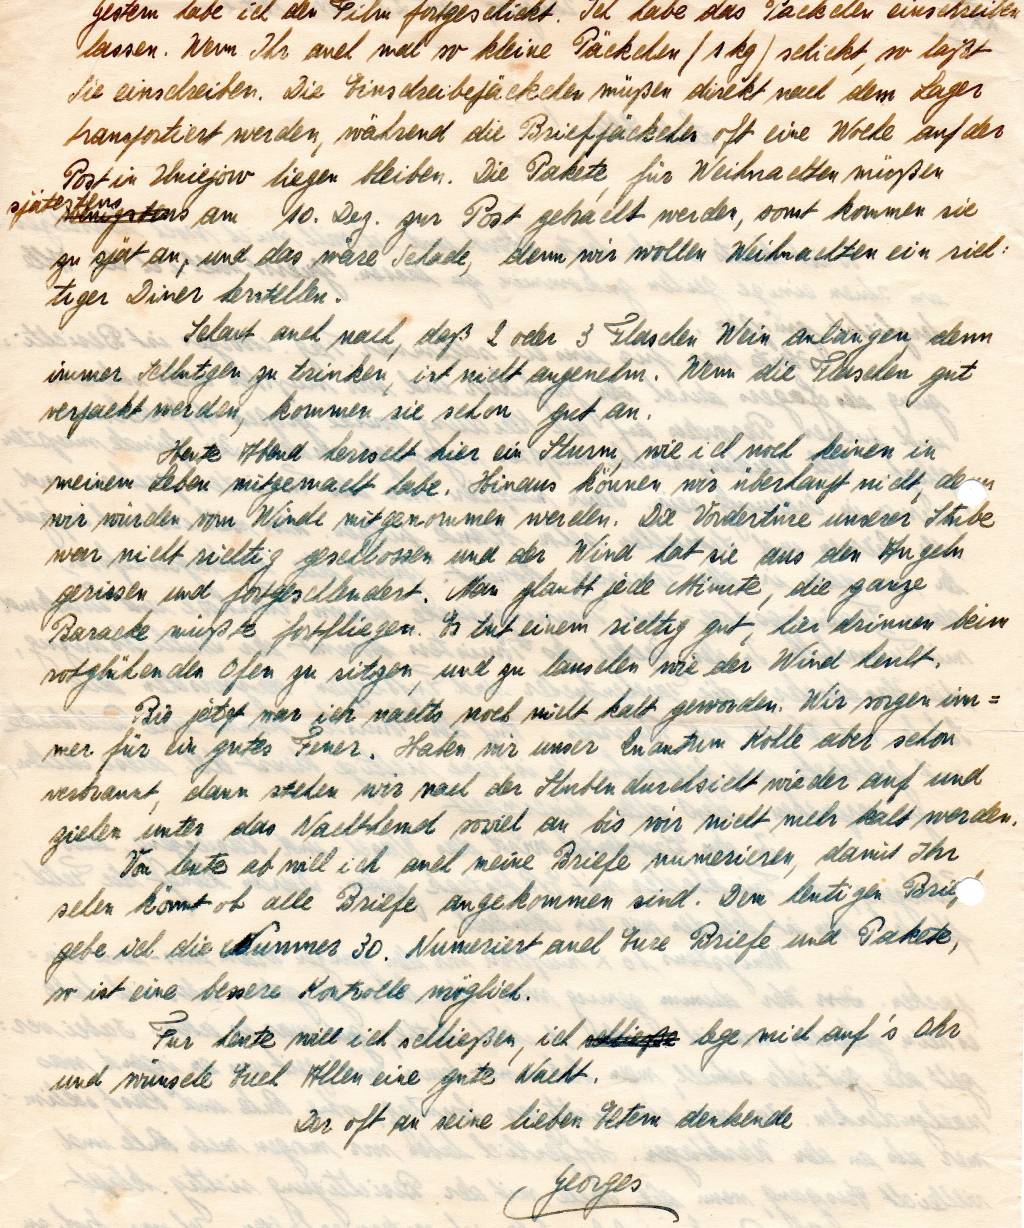 gestern habe ich den Film fortgeschickt. Ich habe das Päckchen einschreiben
lassen. Wenn Ihr auch mal so kleine Päckchen (1 kg) schickt, so laßt
Sie einschreiben. Die Einschreibepäckchen müßen direkt nach dem Lager
transportiert werden, während die Briefpäckchen oft eine Woche auf der
Post in Uniejow liegen bleiben. Die Pakete, für Weihnachten müßen
spätestens am 10. Dez. zur Post gebracht werden, sonst kommen sie
zu spät an, und das wäre Schade, denn wir wollen Weihnachten ein rich:
tiger Diner herstellen.
Schaut auch nach, daß 2 oder 3 Flaschen Wein anlangen denn
immer zu trinken, ist nicht angenehm. Wenn die Flaschen gut
verpackt werden, kommen sie schon gut an.
Heute Abend herrscht hier ein Sturm, wie ich noch keinen in
meinem Leben mitgemacht habe. Hinaus können wir überhaupt nicht, denn
wir würden vom Winde mitgenommen werden. Die Vordertüre unserer Stube
war nicht richtig geschlossen und der Wind hat sie aus den Angeln
gerissen und fortgeschleudert. Man glaubt jede Minute, die ganze
Baracke müßte fortfliegen. Es tut einem richtig gut, hier drinnen beim
rotglühenden Ofen zu sitzen, und zu lauschen wie der Wind heult.
Bis jetzt war ich nachts noch nicht kalt geworden. Wir sorgen im=
mer für ein gutes Feuer. Haben wir unser Quantum Kohle aber schon
verbrannt, dann stehen wir nach der Stubendurchsicht wieder auf und
ziehen unter das Nachthemd soviel an bis wir nicht mehr kalt werden.
Von heute ab will ich auch meine Briefe numerieren, damit Ihr
sehen könnt ob alle Briefe angekommen sind. Dem heutigen Brief
gebe ich die Nummer 30. Numeriert auch Eure Briefe und Pakete,
so ist eine bessere Kontrolle möglich.
Für heute will ich schließen, ich schließe lege mich auf's Ohr
und wünsche Euch Allen eine gute Nacht.
Der oft an seine lieben Eltern denkende
Georges